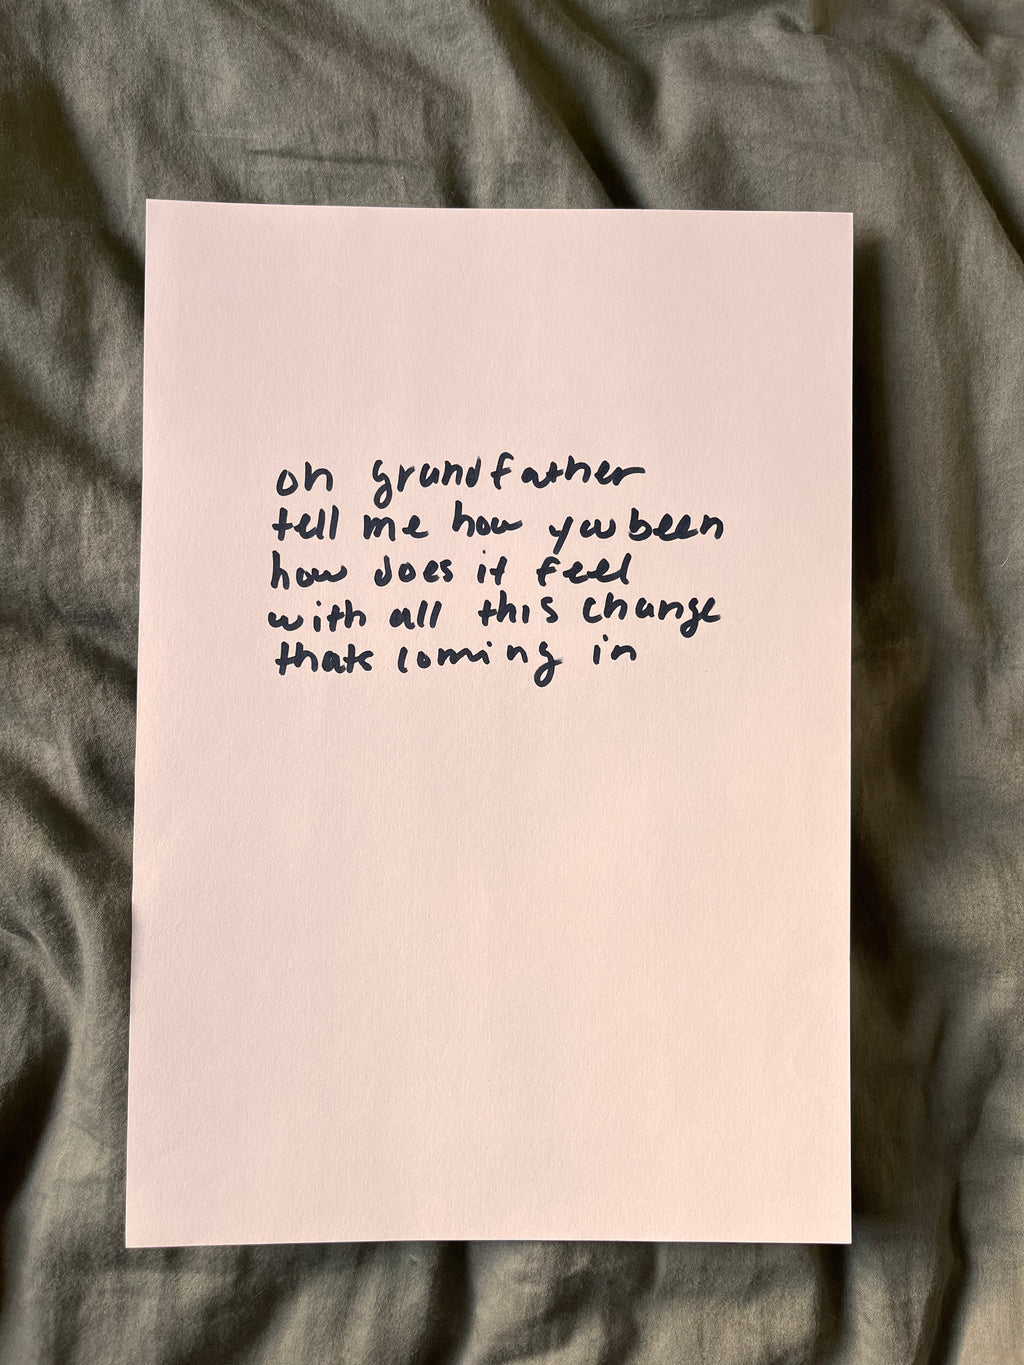 oh grandfather
tell me how you been
how does it feel
with all this change
thats coming in